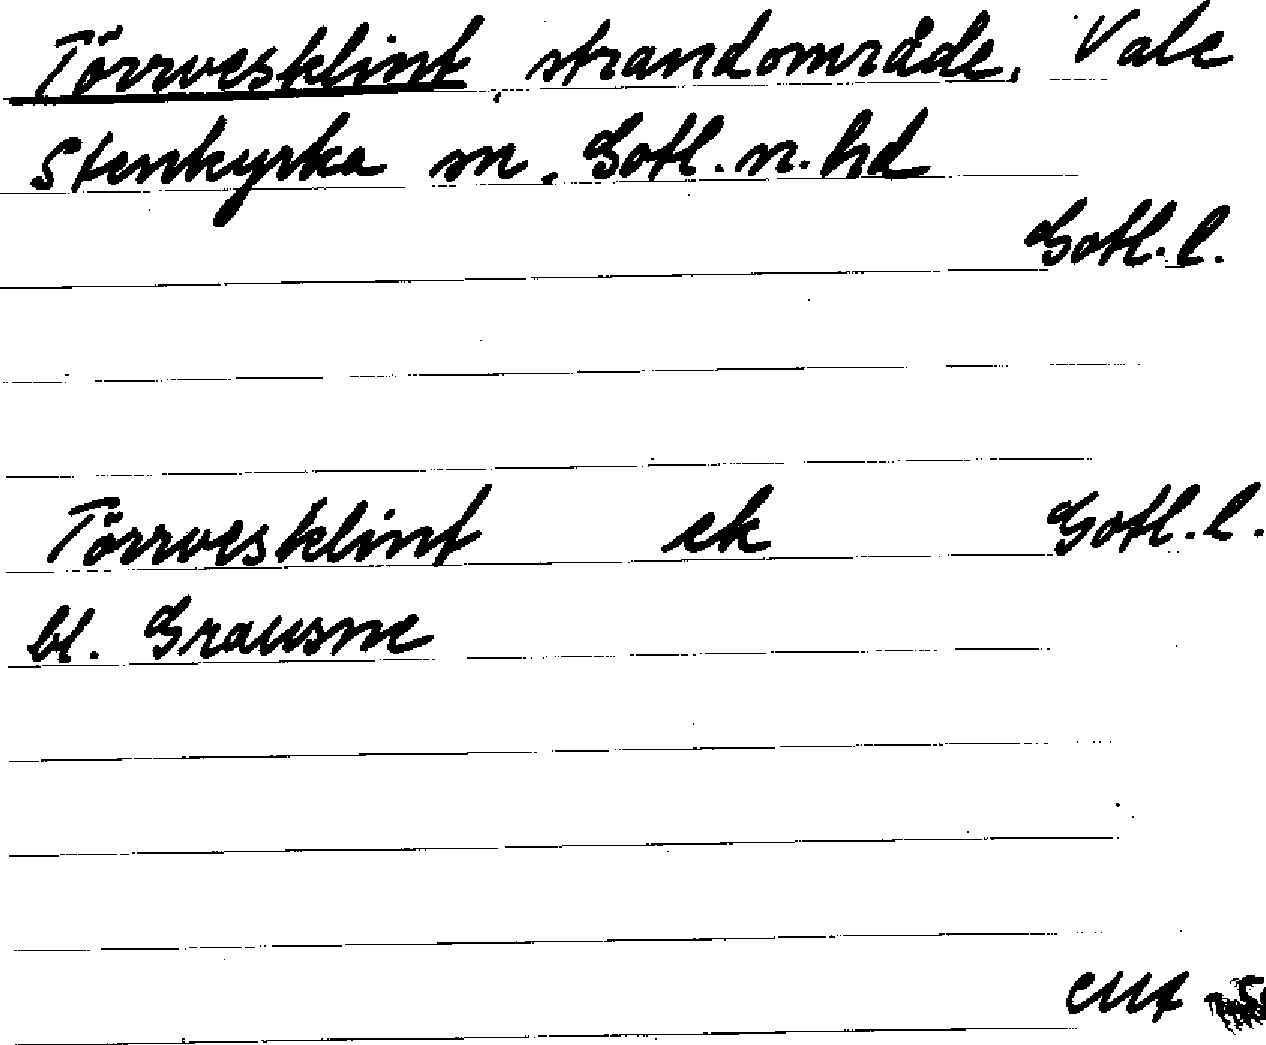 Törrvesklint, strandområde, Vale
Stenkyrka sn, Gotl. n. hd
Gotl. l.
Törrvesklint ek Gotl. l.
bl. Grausne